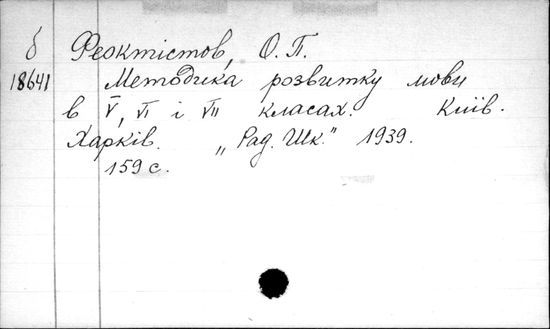 б Феоктістов, О. П.
18641 Методика розвитку мови
в V, VI і VII класах. Київ.
Харків. „Рад. Шк." 1939.
159 с.